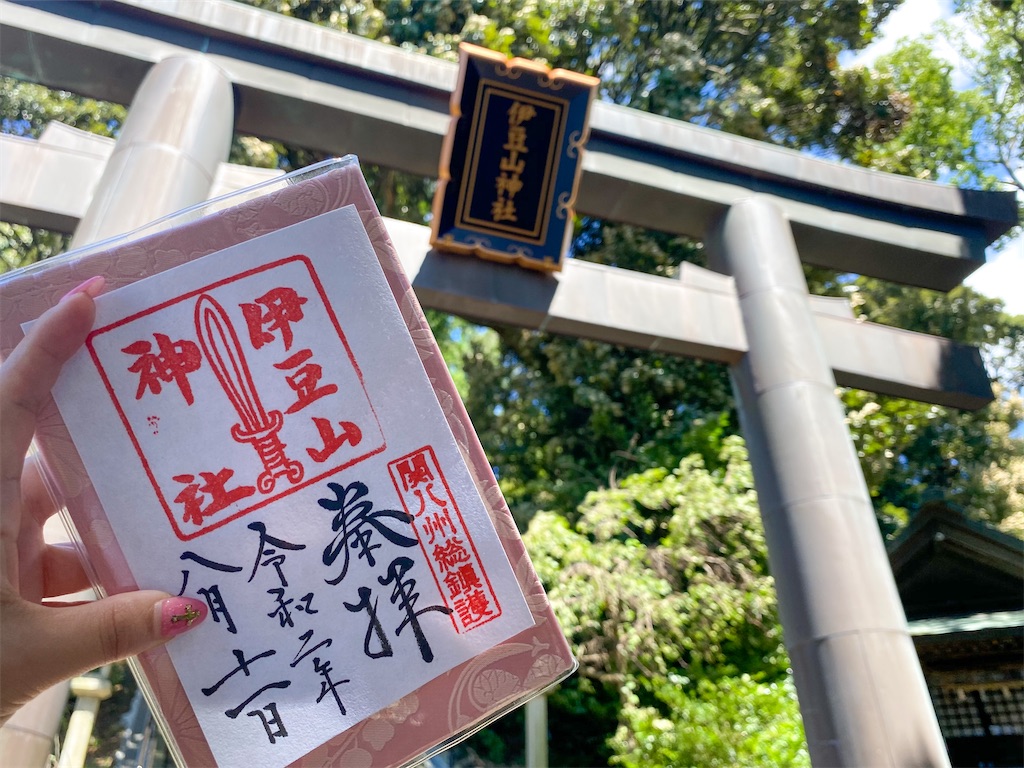 伊豆山神社
伊豆山
神社
関八州総鎮護
奉拝
令和二年
八月十一日